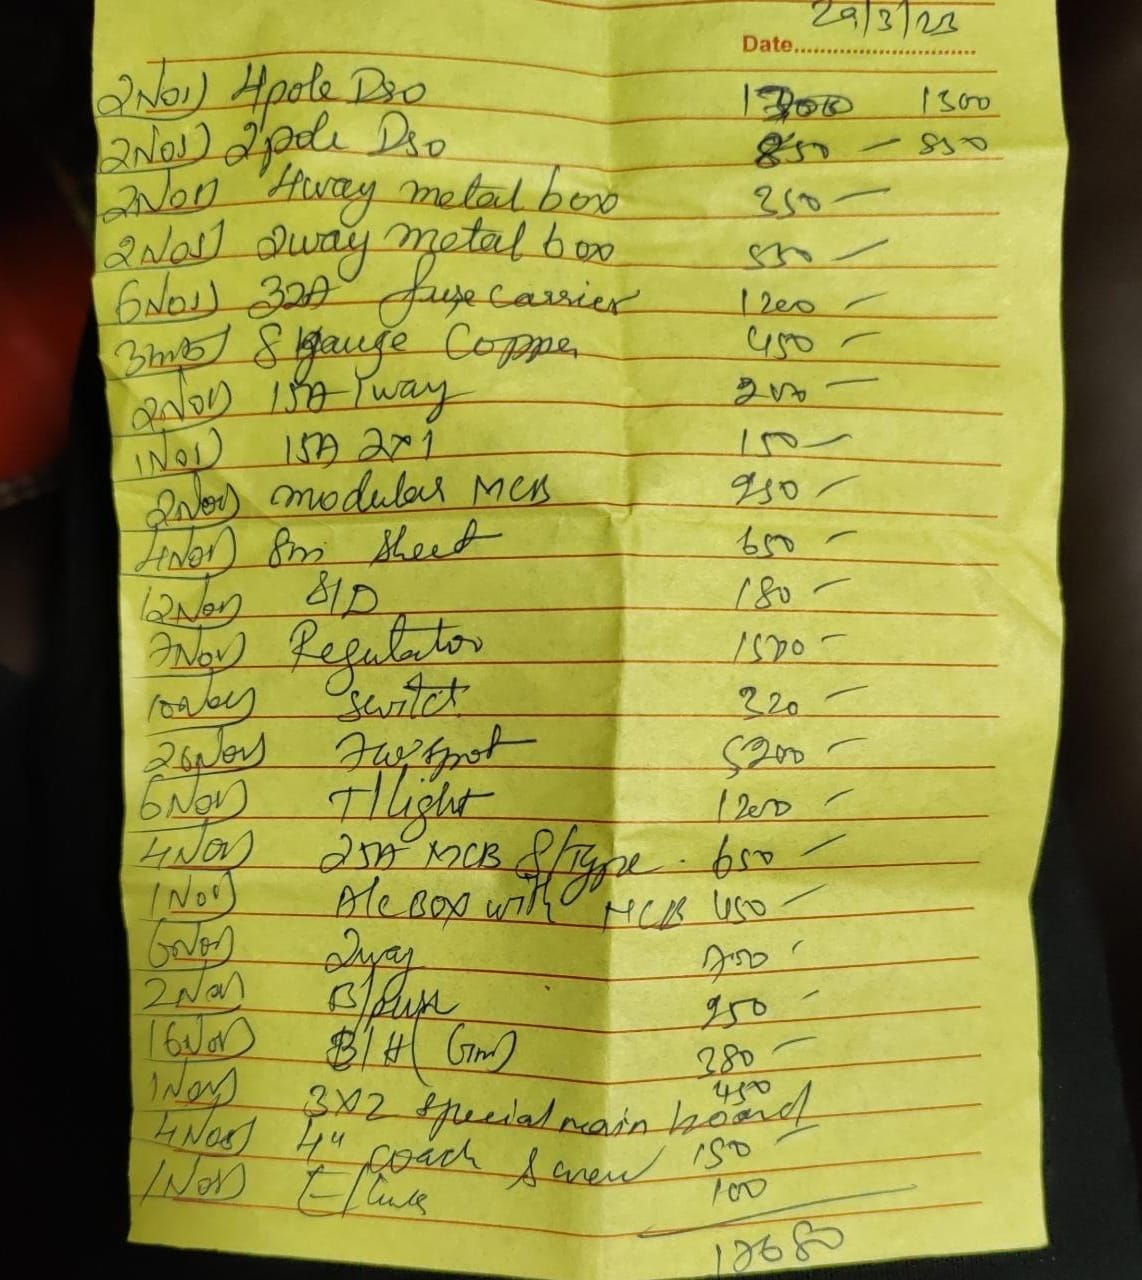 29/3/23
Date
2Nos) 4pole Dso 1300
2Nos) 2pole Dso 850 - 850
2Nos) 4way metal box 350 -
2Nos) 2way metal box 550 -
6Nos) 32A fuse carrier 1200 -
3mts) 8 gauge Copper 450 -
2Nos) 15A-1way 200 -
1Nos) 15A 2x1 150 -
2Nos) modular MCB 950 -
4Nos) 8m Sheet 650 -
12Nos) S/D 180 -
7Nos) Regulator 1500 -
10Nos) 320 -
26Nos) 5200 -
6Nos) T/light 1200 -
4Nos) 25A MCB S/Type. 650 -
1Nos) A/c Box with MCB 450 -
6Nos) 2way
2Nos) 950 -
16Nos) B/H (Gm) 380 -
1Nos) 3x2 special main board 450
4Nos) 4" coach Screw 150 -
1Nos) 100
17680